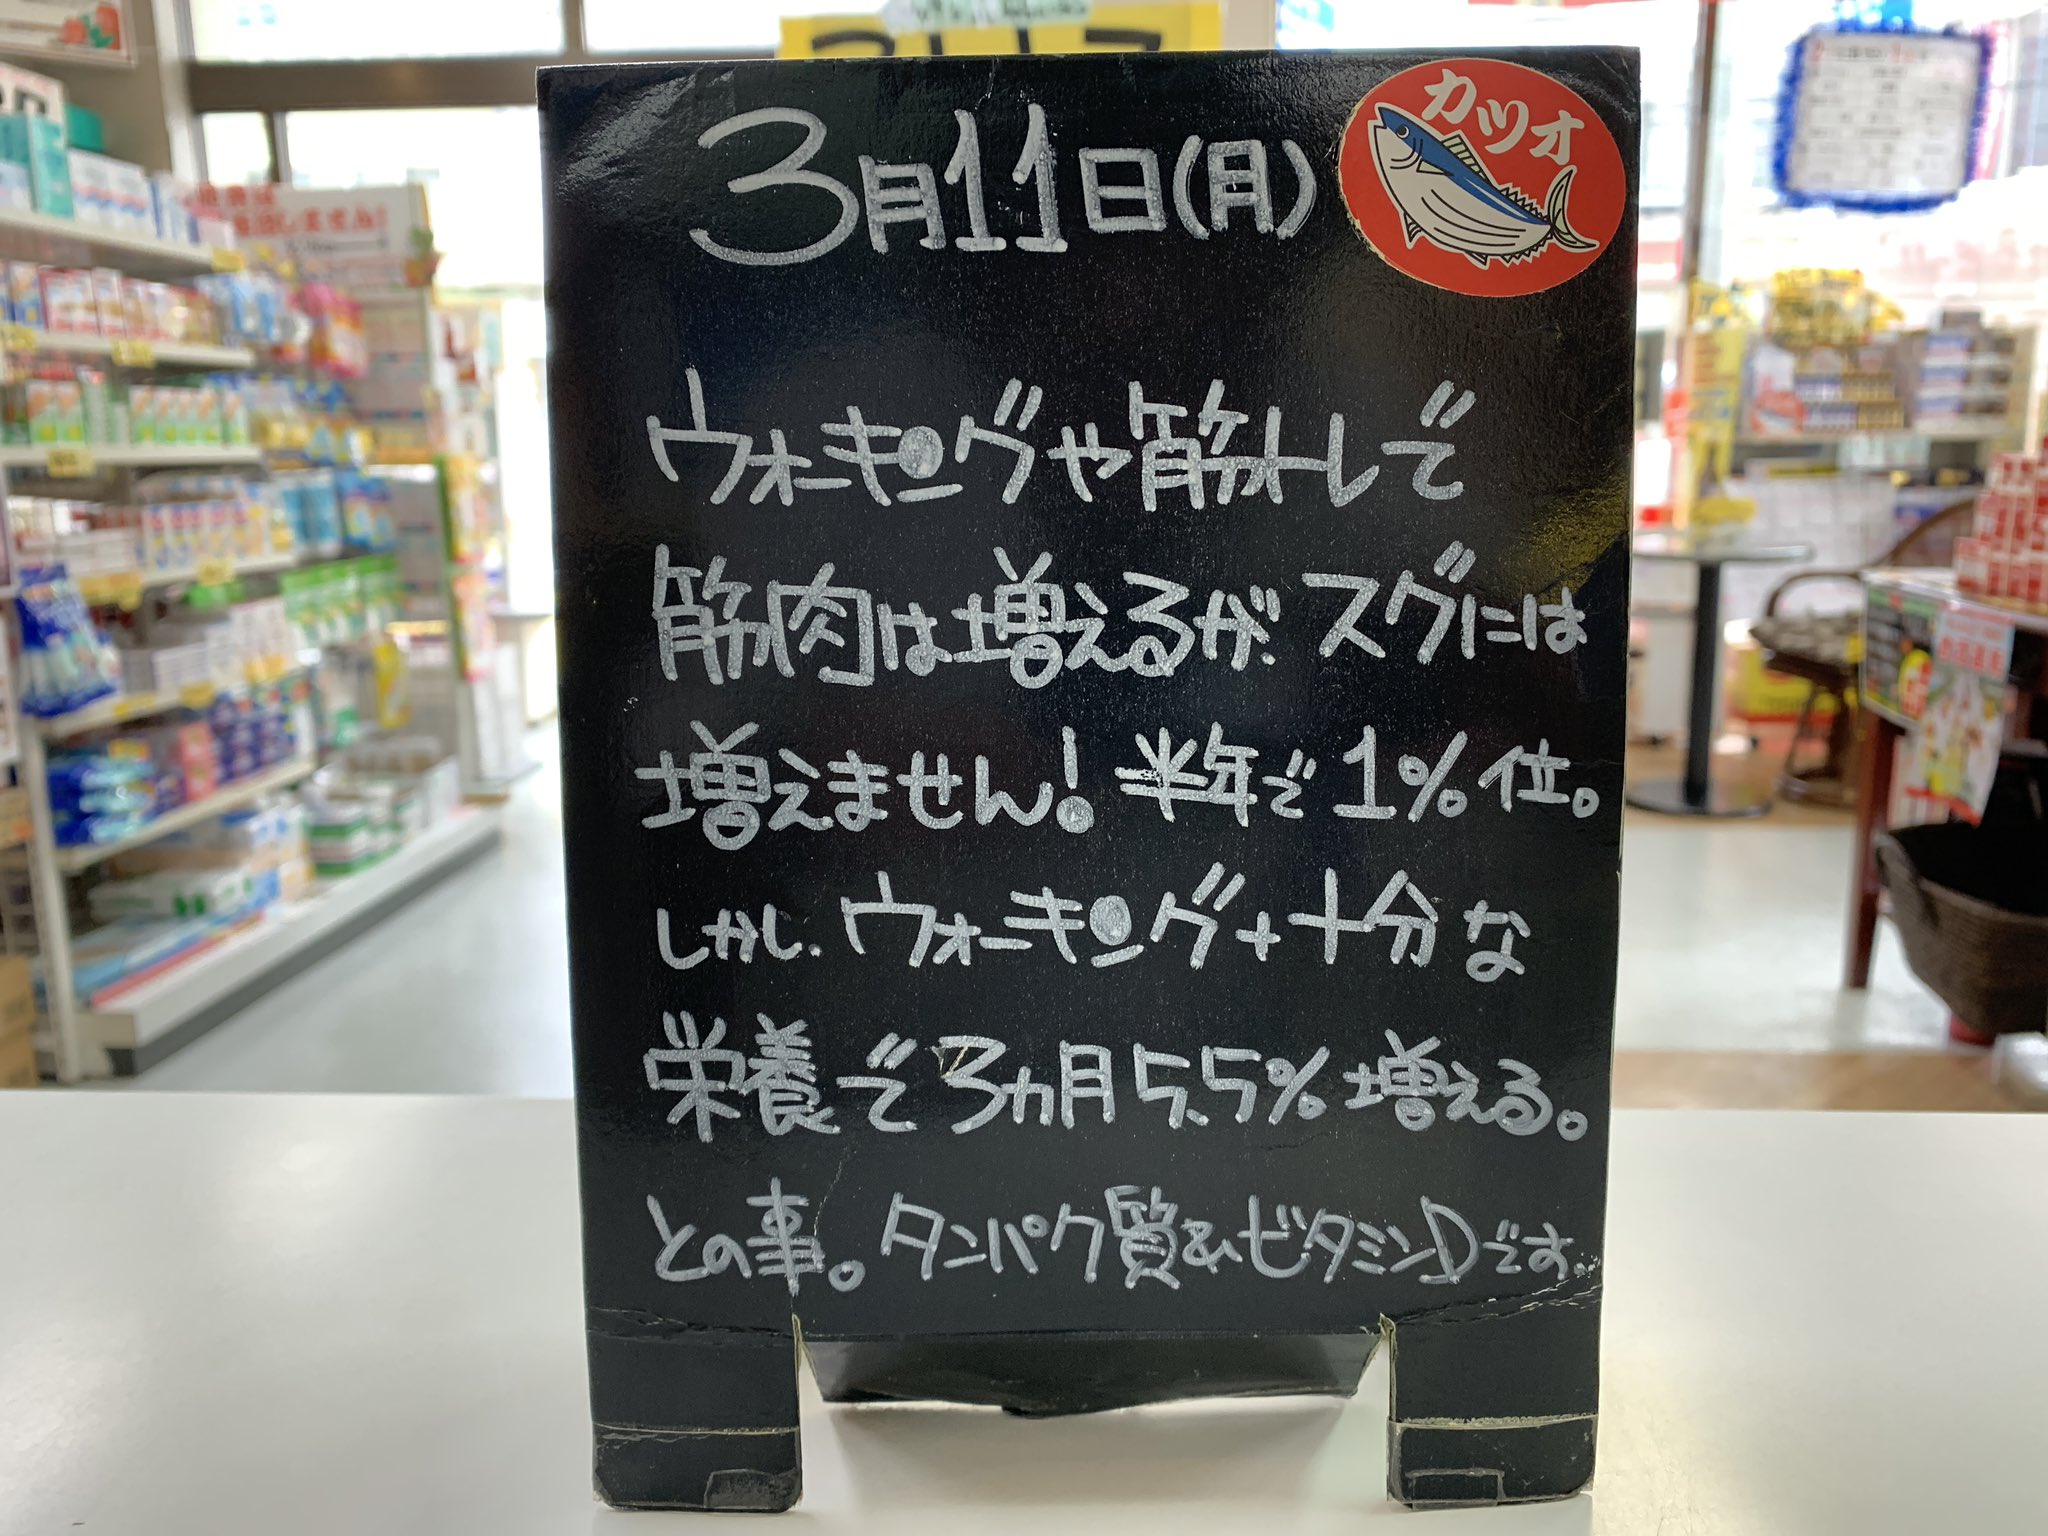 3月11日(月)
カツオ
ウォーキングや筋トレで
筋肉は増えるが、スグには
増えません!半年で1%位。
しかし、ウォーキング+十分な
栄養で3ヵ月5.5%増える。
との事。タンパク質&ビタミンDです。